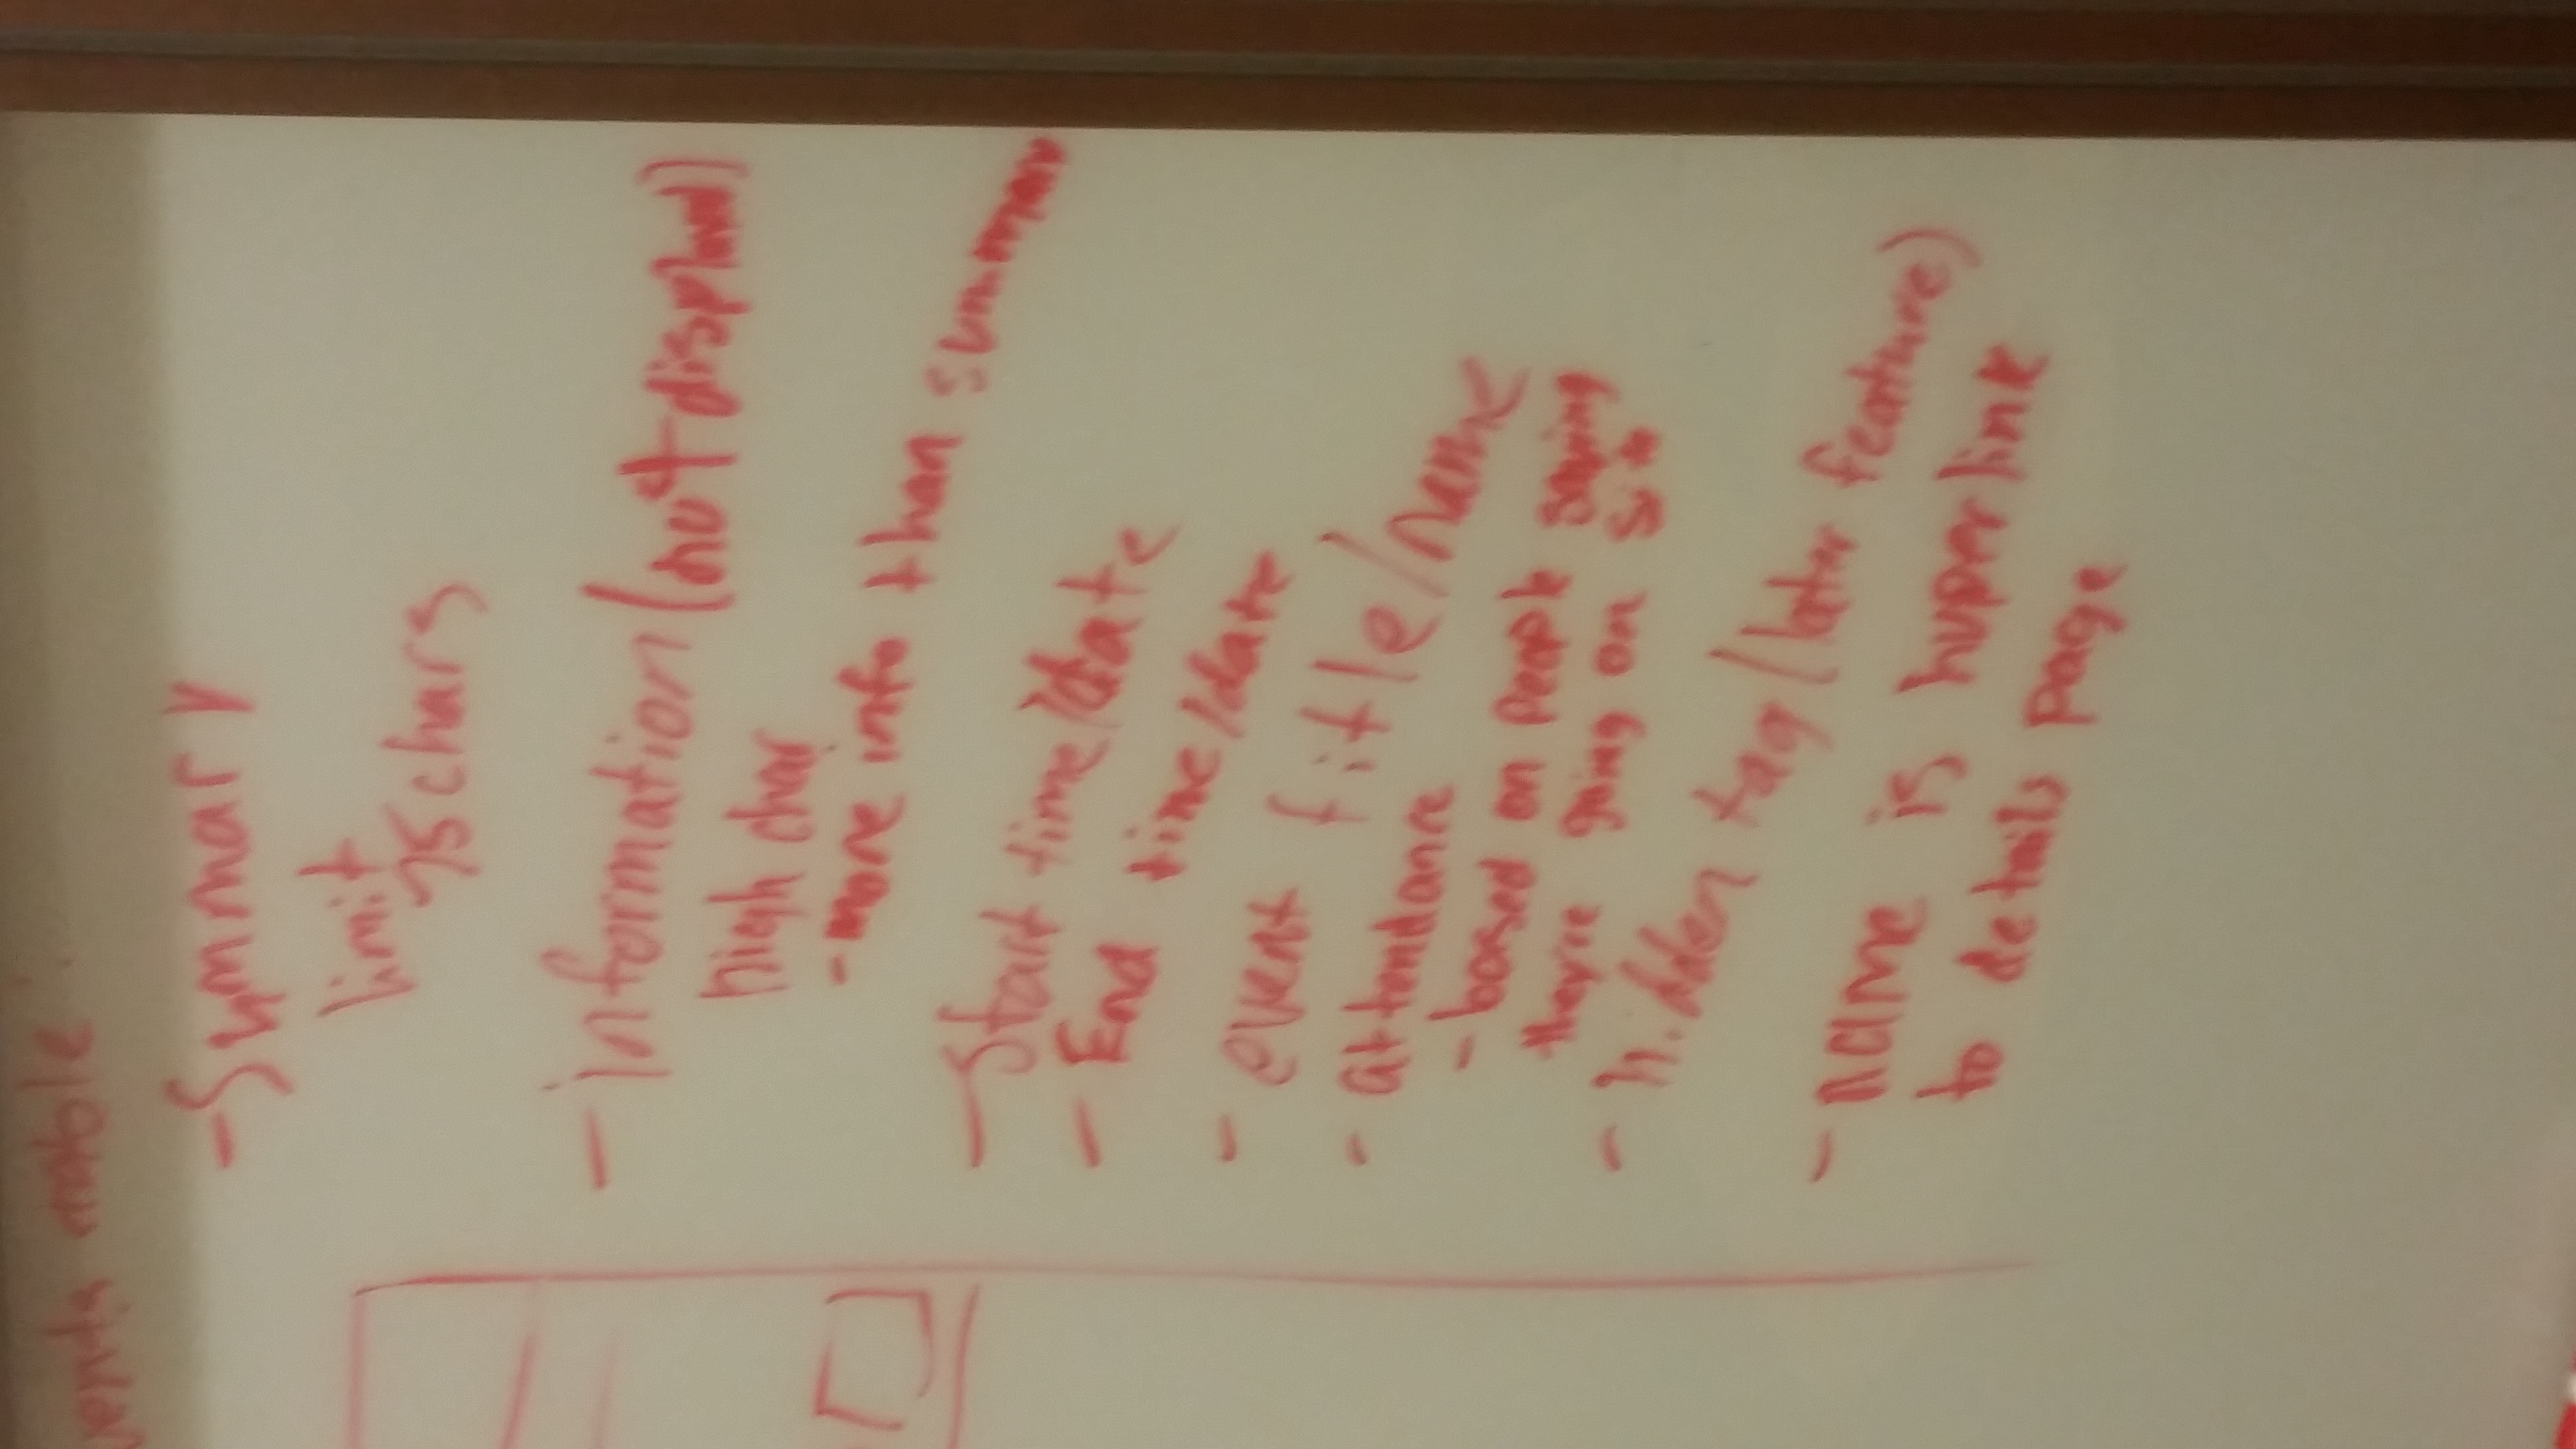 vents mobile
- Summary
limit
75 chars
- information (not displayed)
high char
- more info than summary
- Start time/date
- End time/date
- event title/name
- attendance
- based on people saying
they're going on site
- hidden tag (later feature)
- name is hyperlink
to details page